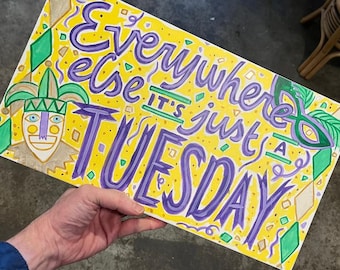 Everywhere
else IT'S just A
TUESDAY